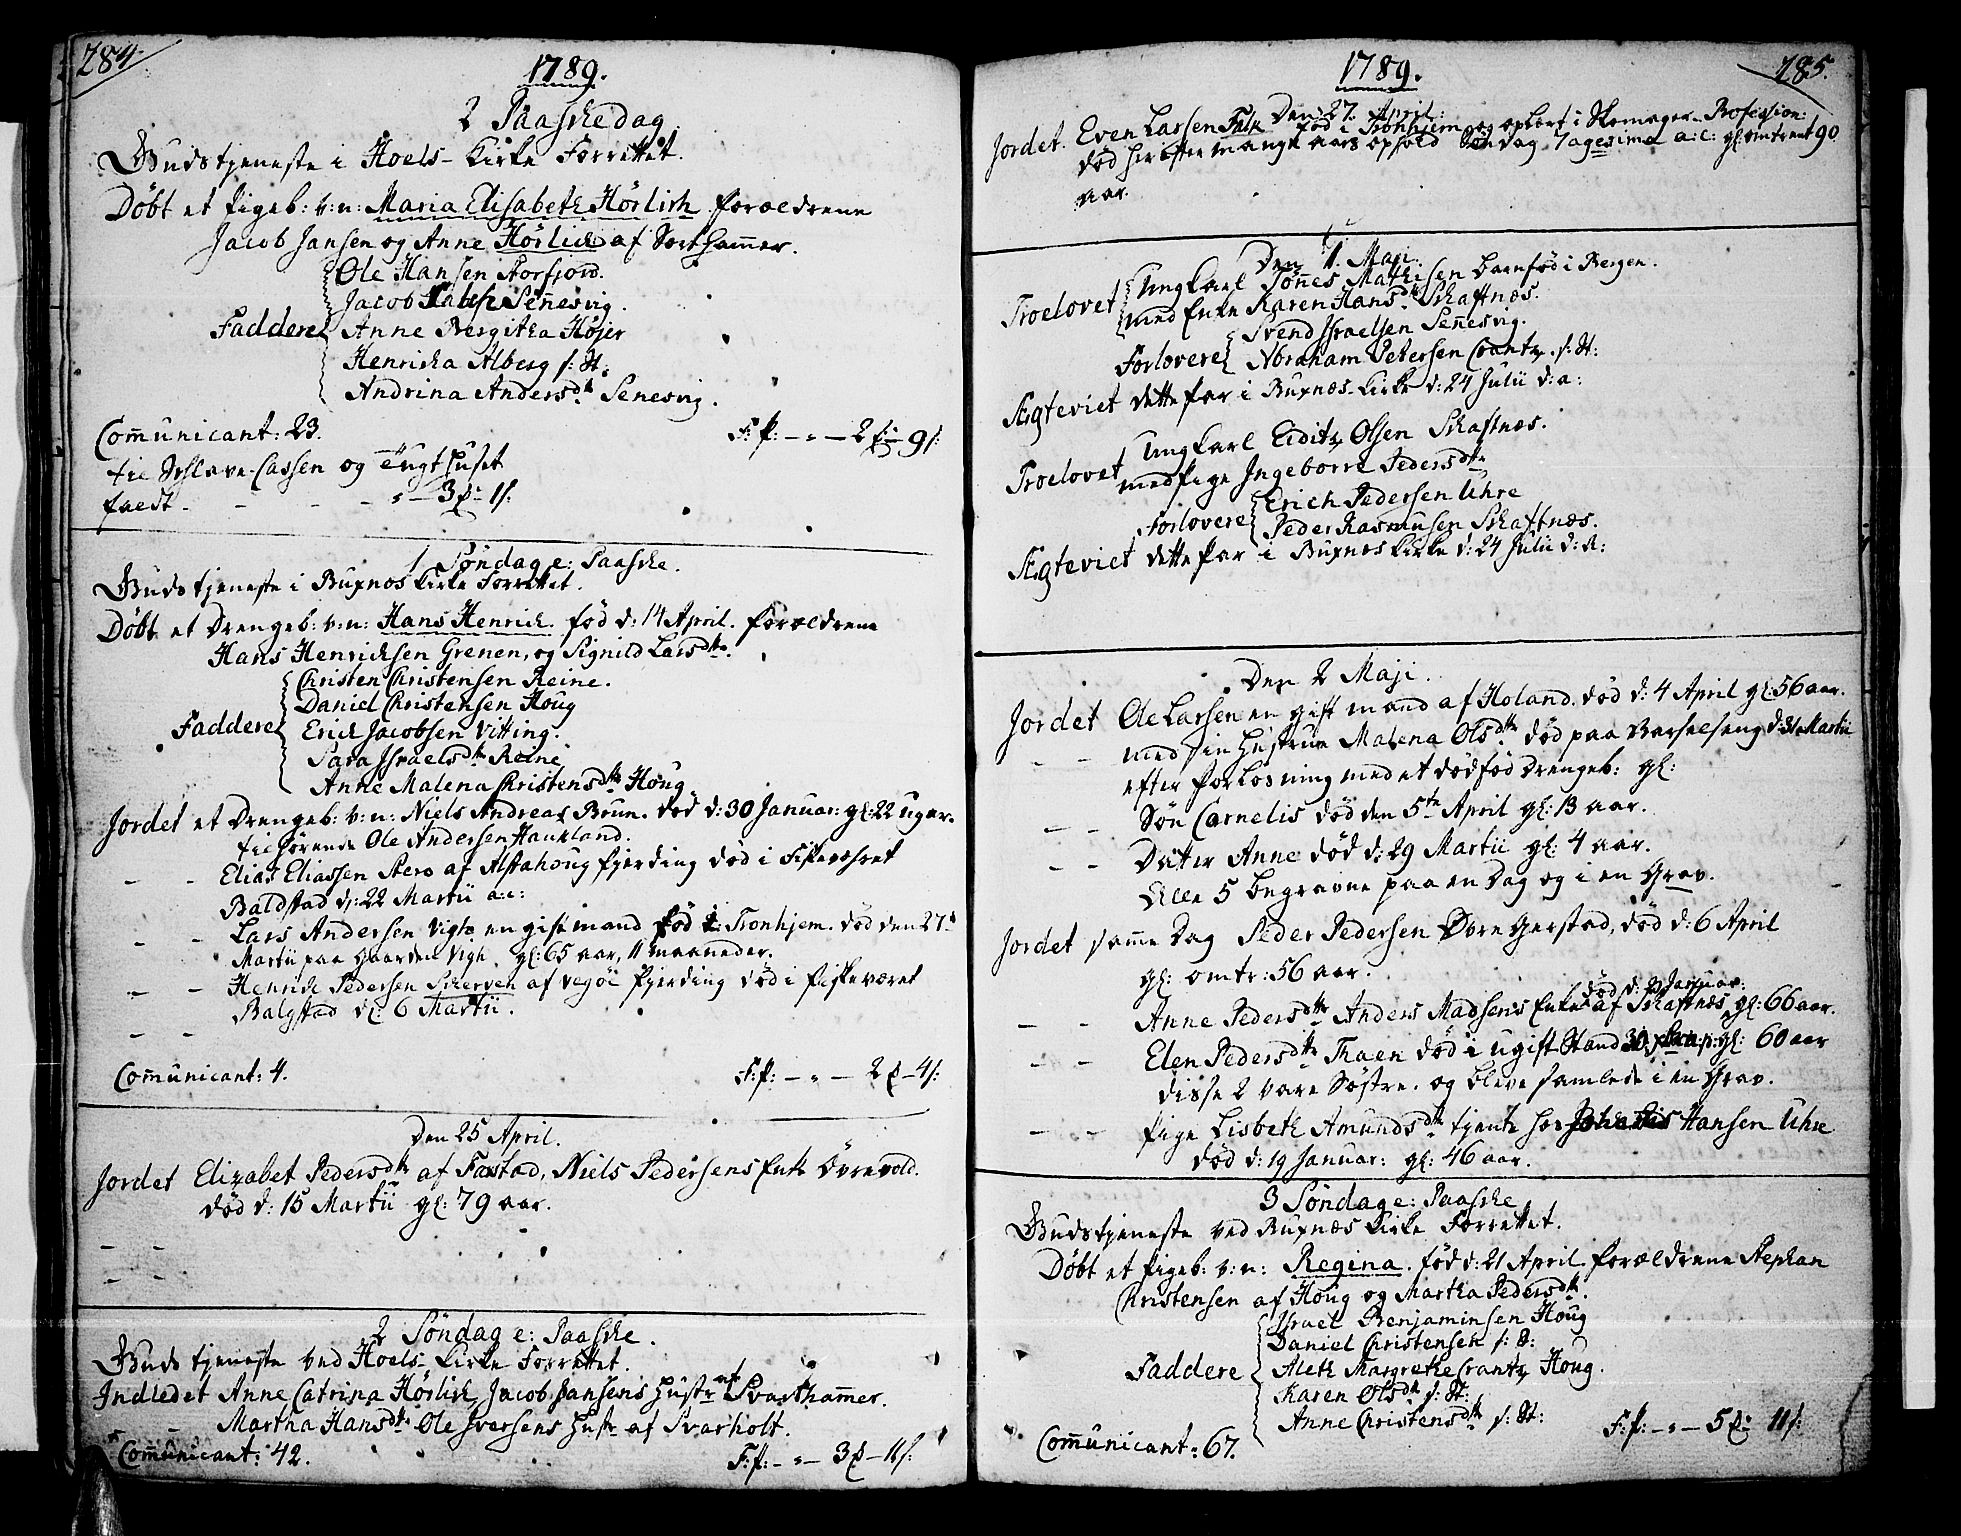 284
1789.
2 Paaschedag
Gudstjeneste i Hoels-Kirke Forrettet.
Døbt et Pigeb: v: n: Maria Elisabeth Hörlich forældrene
Jacob Jansen og Anne Hörlich af Svarthamer.
Ole Hansen Storfjord.
Jacob Senesvig.
Faddere Anne Bergitha Höjer
Henricha Alberg s: St:
Andrina Andersdtr Senesvig.
Comunicant: 23. F: P: - " - 2 - 9 s:
til Slave-Cassen og Tugthuset
faldt - - - " - 3 - 1 s:
1 Søndag e: Paasche.
Gudstjeneste i Buxnæs Kirke Forrettet.
Døbt et Drengeb: v: n: Hans Henrich. fød d: 14 April. forældrene
Hans Henrichsen Grenen, og Signild Larsdtr.
Christen Christensen Reine.
Daniel Christensen Houg
Faddere Erich Jacobsen Vitting.
Sara Israelsdtr Reine
Anne Malena Christensdtr Houg
Jordet et Drengeb: v: n: Niels Andreas Brun. død d: 30 Januar: gl: 22 uger.
tilhørende Ole Andersen Haukland.
- - Elias Eliassen Stero af Alstahoug fjerding død i Fiskeværet
Baldstad d: 22 Martii a: c:
- - Lars Andersen Vigh en gift mand fød i Tronhjem. død den 27de
Martii paa Gaarden Vigh. gl: 65 aar, 11 maaneder.
- - Henrich Pedersen Scherven af Vegöe fjerding død i fiskeværet
Balgstad d: 6 Martii.
- -
Comunicant: 4. F: P: - " - 2 - 4 s:
Den 25 April.
Jordet Elizabet Pedersdtr af Farstad, Niels Pedersens Enke Övrevold.
død d: 15 Martii gl: 79 aar.
- -
- -
2 Søndag e: Paasche.
Gudstjeneste ved Hoels-Kirke Forrettet.
Indledet Anne Catrina Hörlich Jacob Jansens Hustr: Svarthamer.
- Martha Hansdtr Ole Iversens Hustr af Svarholt.
Comunicant: 42. F: P: - " - 3 - 11 s:
285.
1789.
Den 27. April:
Jordet. Even Larsen Falk fød i Tronhjem og oplært i Skomager-Profession:
død her efter mange aars ophold Søndag 7agesima a: c: gl: omtrent 90
aar.
Den 1. Maji.
Troelovet Ungkarl Tönnes Mathisen barnfød i Bergen.
med Enke Karen Hansdtr Schaftnæs.
Forlovere Svend Israelsen Senesvig.
Abraham Petersen Crantz. s: St:
Ægteviet dette par i Buxnæs-Kirke d: 24 Julii d: a:
Troelovet Ungkarl Eiditz Olsen Schaftnæs.
med Pige Ingeborre Pedersdtr
Forlovere Erich Pedersen Uhre
Peder Rasmusen Schaftnæs.
Ægteviet dette par i Buxnæs Kirke d: 24 Julii d: a:
Den 2 Maji.
Jordet Ole Larsen en gift mand af Holand. død d: 4 April gl: 56 aar.
- - med sin Hustrue Malena Olsdtr død paa Barselseng d: 31 Martii
efter forløsning med et dødfød Drengeb: gl:
- - Søn Cornelis død den 5te April gl: 13 aar.
- - Datter Anne død d: 29 Martii gl: 4 aar.
Alle 5 begravne paa en Dag og i en Grav.
Jordet samme Dag Peder Pedersen Övre Gerstad, død d: 6 April
gl: omtr: 56 aar.
død d: 29 Januar:
- - Anne Pedersdtr Anders Madsens Enke af Schaftnæs gl: 66 aar.
- - Elen Pedersdtr Thaen død i ugift Stand gl: 60 aar
disse 2 vare Søstre. og bleve samlede i en Grav.
- - Pige Lisbeth Amundsdtr tjente hos Hansen Uhre
død d: 19 Januar: gl: 46 aar.
3 Søndag e: Paasche
Gudstjeneste ved Buxnæs Kirke Forrettet.
Døbt et Pigeb: v: n: Regina. fød d: 21 April. forældrene Stephan
Christensen af Houg og Martha Pedersdtr.
Israel Benjaminsen Houg
Daniel Christensen s: St:
Faddere Aleth Margrethe Crantz Houg.
Karen Olsdtr s: St:
Anne Christensdtr s: St:
Comunicant: 67. F: P: - " - 5 11 s: